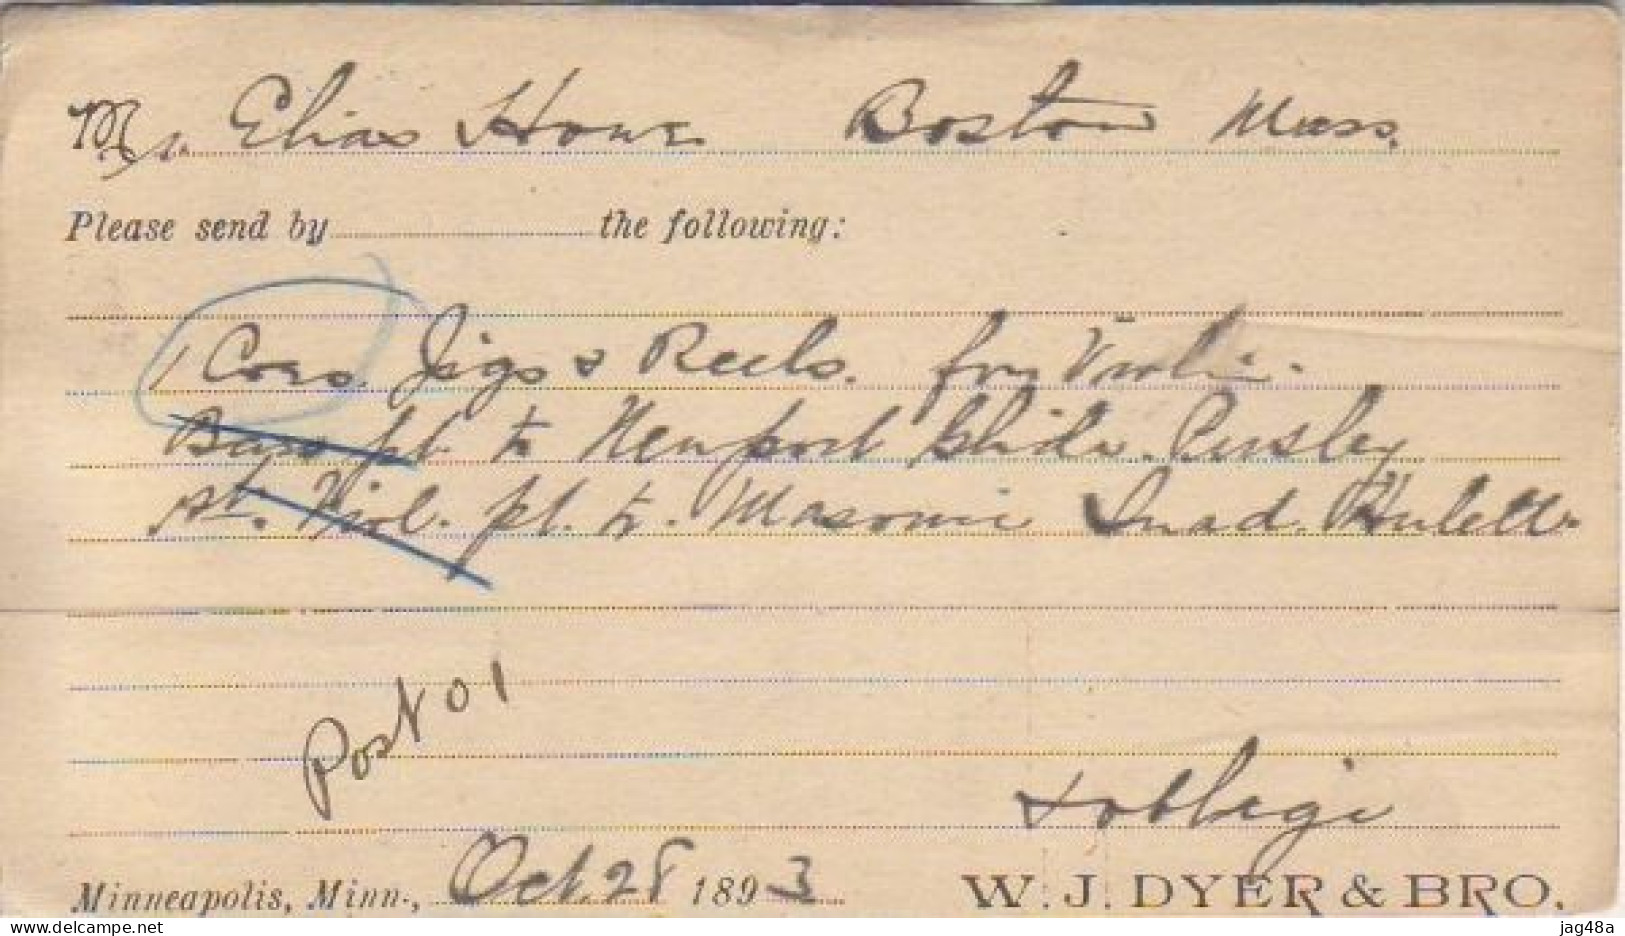 Mr. Elias Howe Boston Mass.
Please send by the following:
1 Coes Jigs & Reels. for Violin.
Bass pt. to Newport Glide. Pursley
St. Viol. pt. to. Masonic Quad. Hulett.
Post 01
& oblige
Minneapolis, Minn., Oct. 28 1893
W. J. DYER & BRO.
delcampe.net
jag48a